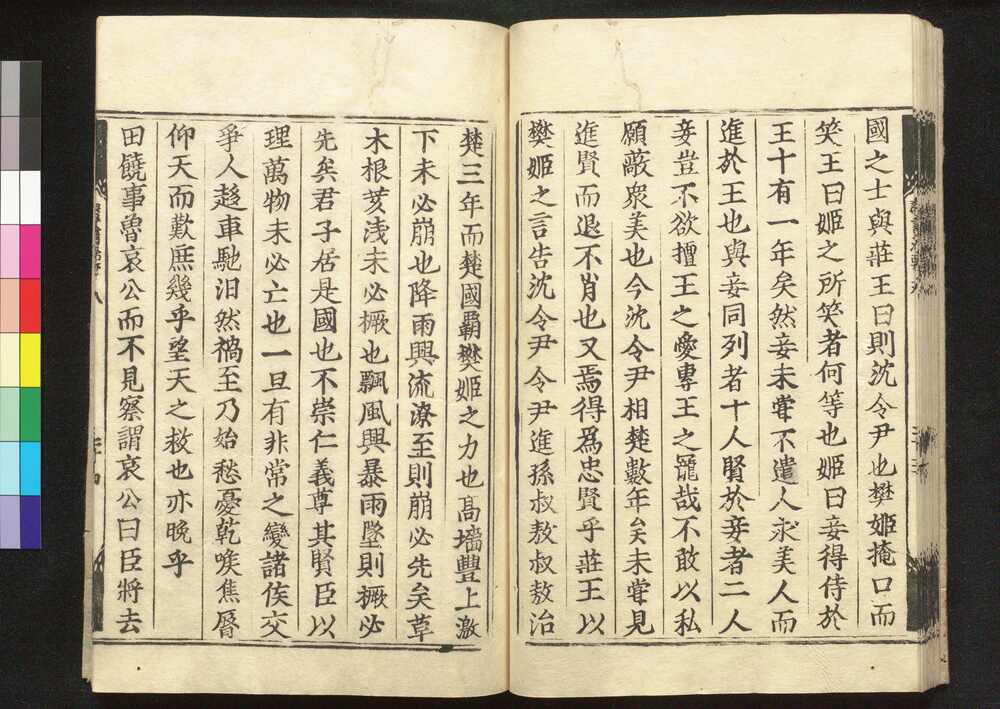 國之士與莊王曰則沈令尹也樊姬掩口而
笑王曰姬之所笑者何等也姬曰妾得侍於
王十有一年矣然妾未甞不遣人求美人而
進於王也與妾同列者十人賢於妾者二人
妾豈不欲擅王之愛專王之寵哉不敢以私
願蔽衆美也今沈令尹相楚數年矣未甞見
進賢而退不肖也又焉得爲忠賢乎莊王以
樊姬之言告沈令尹令尹進孫叔敖叔敖治
楚三年而楚國霸樊姬之力也髙墻豐上激
下未必崩也降雨興流潦至則崩必先矣草
木根荄淺未必撅也飄風興暴雨墜則撅必
先矣君子居是國也不崇仁義尊其賢臣以
理萬物未必亡也一旦有非常之變諸侯交
爭人趍車馳汨然禍至乃始愁憂乾喉焦脣
仰天而歎庶幾乎望天之救也亦晚乎
田饒事魯哀公而不見察謂哀公曰臣將去